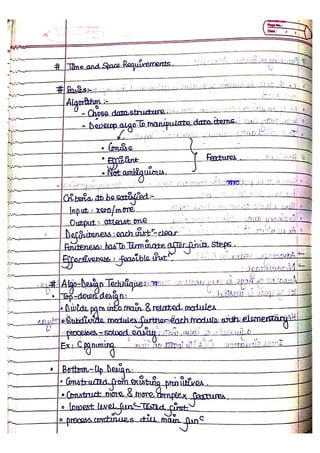 Page No.:
Date:
# Time and Space Requirements.
# Basics:-
Algorithm :-
- Chose data structure
- Develop algo To manipulate data items.
• Concise
• Efficient } Features
• Not ambiguous.
Criteria to be satisfied:-
Input: zero/more
Output: atleast one
Definiteness: each instⁿ-clear
Finiteness: has to Terminate after finite steps.
Effectiveness: feasible instⁿ
# Algo-Design Techniques:
• Top-down design:
• Divide pgm into main & related modules
• Subdivide modules further each module with elementary
processes - solved easily
Ex: C pgmming
• Bottom-Up Design:
• Constructed from existing primitives.
• Construct more & more complex features.
• lowest level funᶜ Tested first
• process continues till main funᶜ